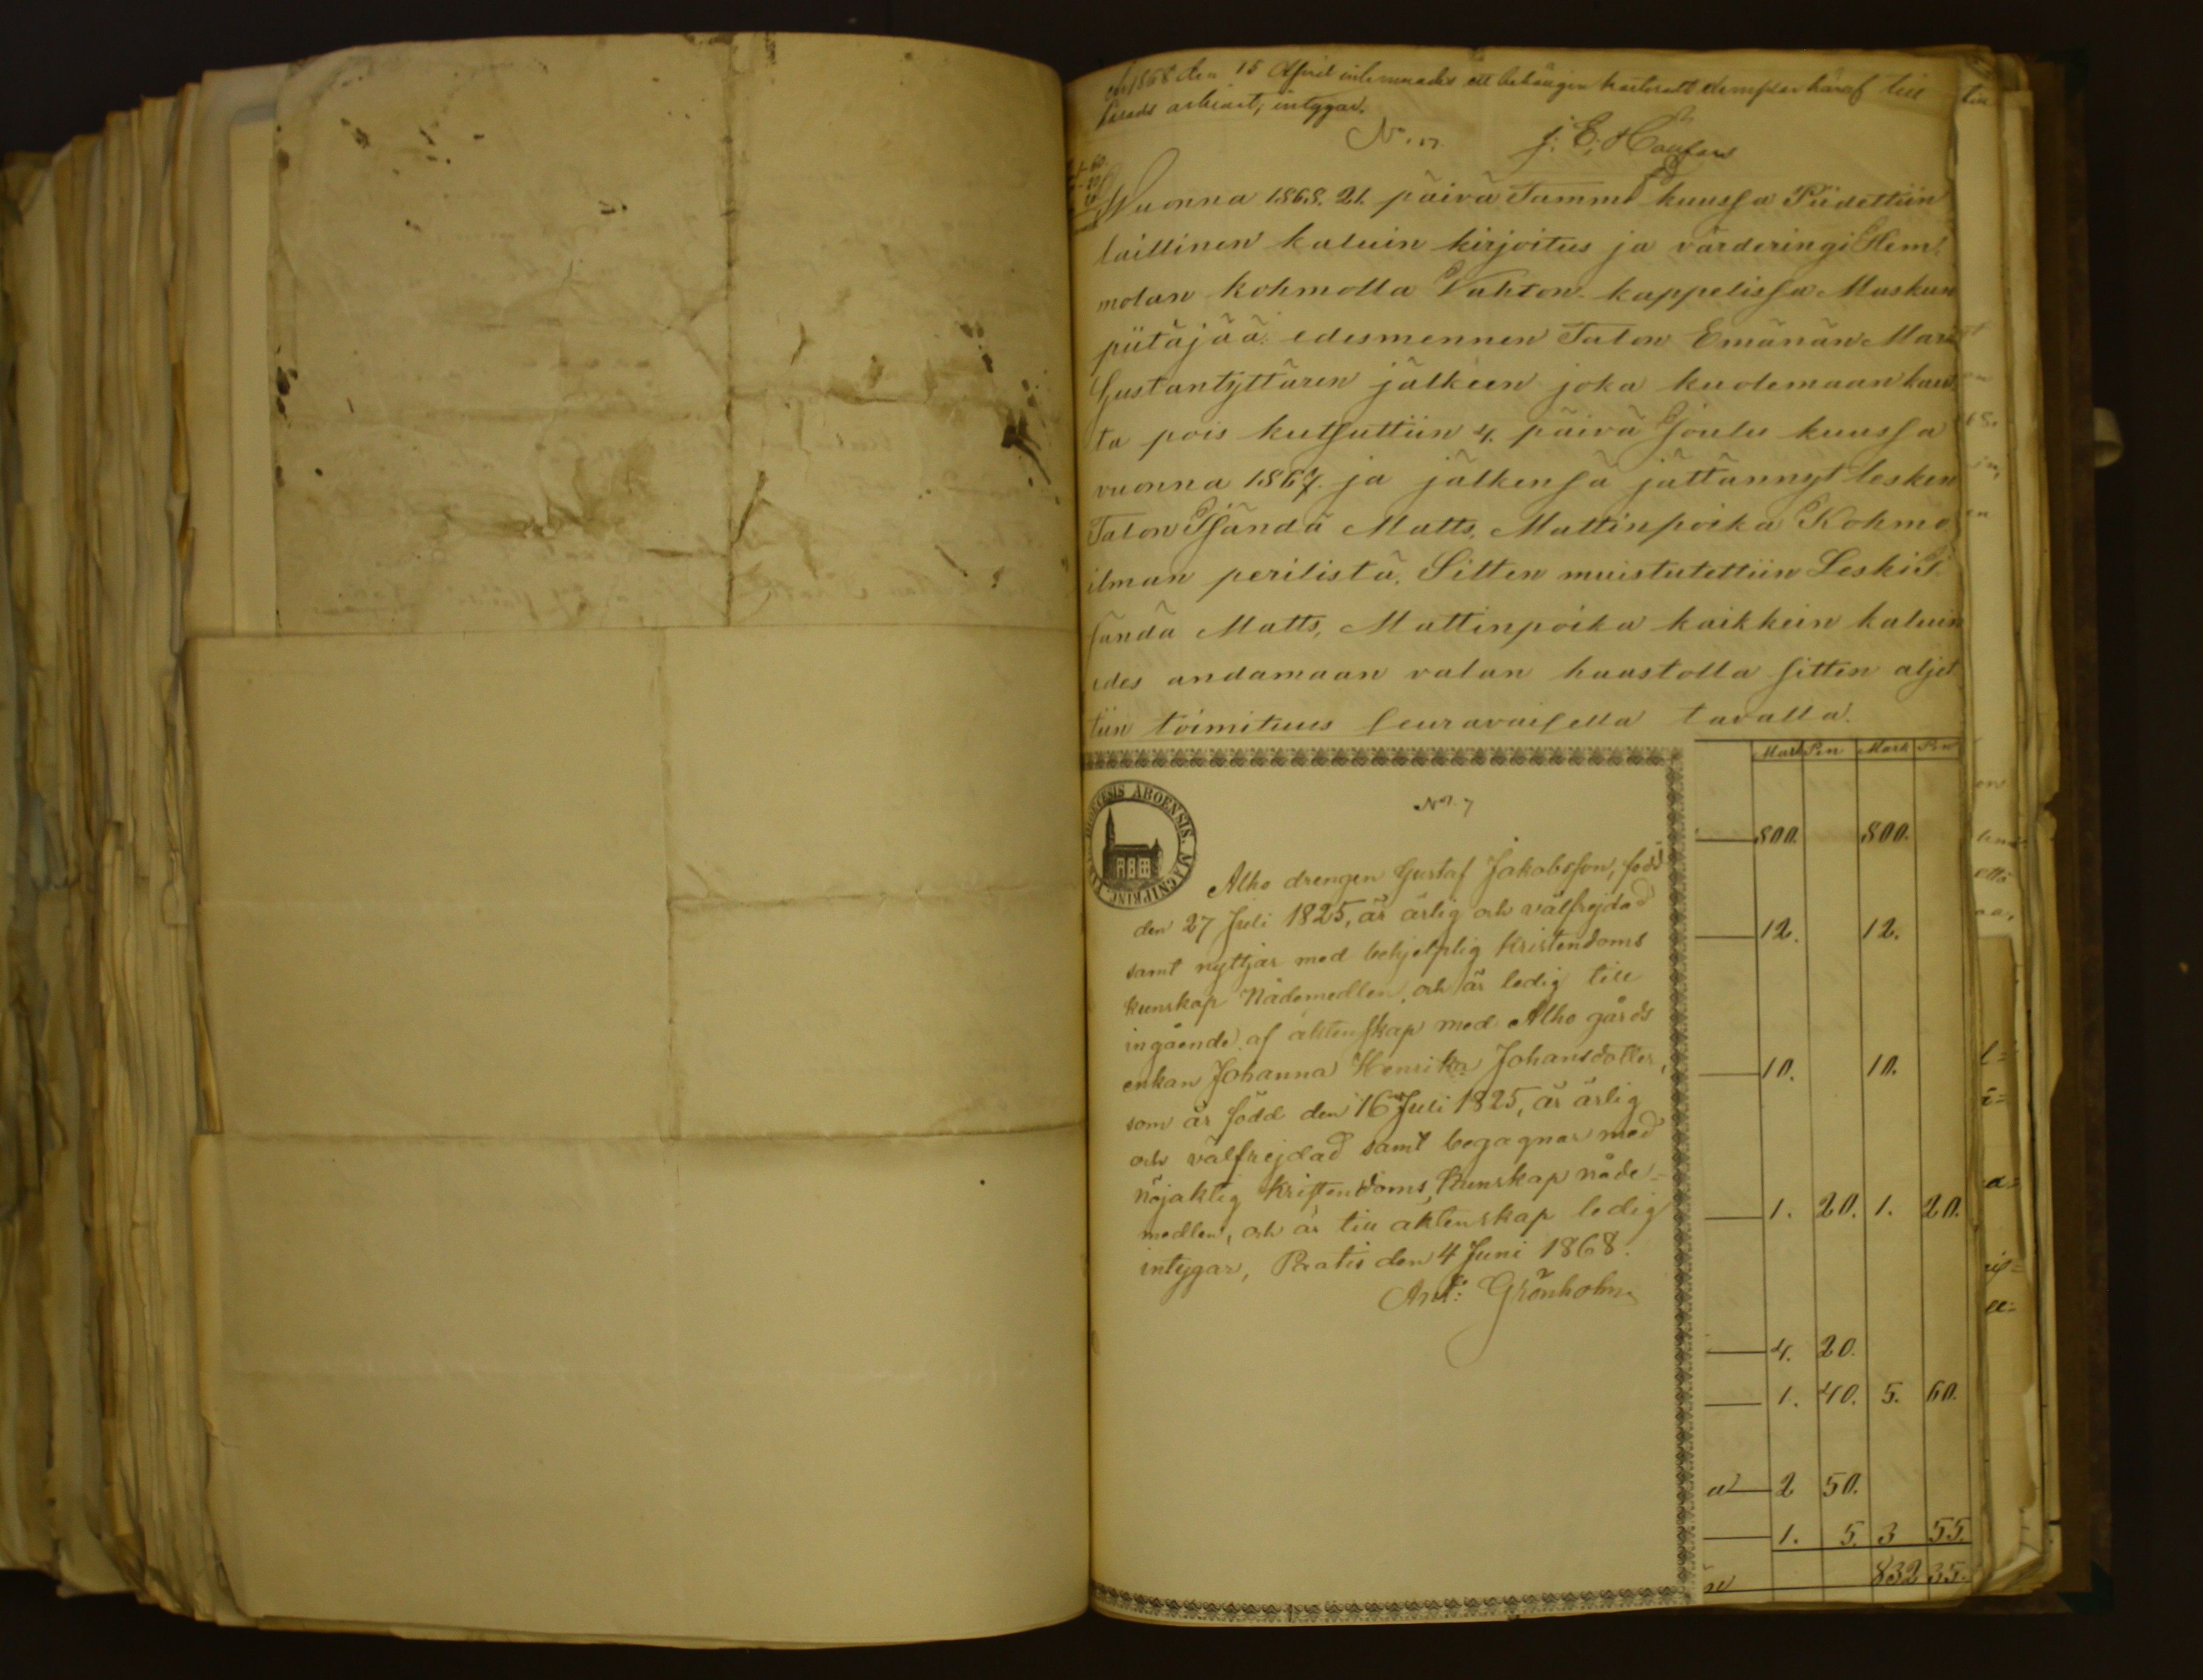 1868 den 15 April inlemnades ett behörigen karterat exemplar häraf till
härads arkivet, intygar.
J. E. Haufars
Wuonna 1868. 21. päivä Tammi kuussa Piidettiin
laillinen kaluin kirjoitus ja värderingi Hem-
molan kohmolla Vahton kappelissa Maskun
piitäjää. edesmennen Talon Emänän Maria
Gustantyttären jälkeen joka kuolemaan kaut-
ta pois kutsuttiin 4. päivä Joulu kuussa
vuonna 1867. ja jälkensä jättännyt lesken
Talon Isändä Matts, Mattinpoika Kohmo
ilman perilistä. Sitten muistutettiin Leski I-
sändä Matts, Mattinpoika kaikkein kaluin
edes andamaan valan haastolla sitten aljet-
tiin toimituus seuravaisella tavalla.
Mark Pen Mark Pen
800. 800.
12. 12.
10. 10.
1. 20. 1. 20.
4. 20.
1. 40. 5. 60.
2 50.
1. 5. 3 55.
832 35.
DIOECESIS ABOENSIS. MAGNI PRINC.
No. 7
Alho drengen Gustaf Jakobsson, född
den 27 Juli 1825, är ärlig och välfrejdad
samt nyttjar med behjelplig kristendoms
kunskap Nådemedlen, och är ledig till
ingående af äktenskap med Alho gårds
enkan Johanna Henrika Johansdotter,
som är född den 16 Juli 1825, är ärlig
och välfrejdad samt begagnar med
nöjaktig kristendoms kunskap nåde-
medlen, och är till äktenskap ledig
intygar, Pratis den 4 Juni 1868.
Ant: Grönholm